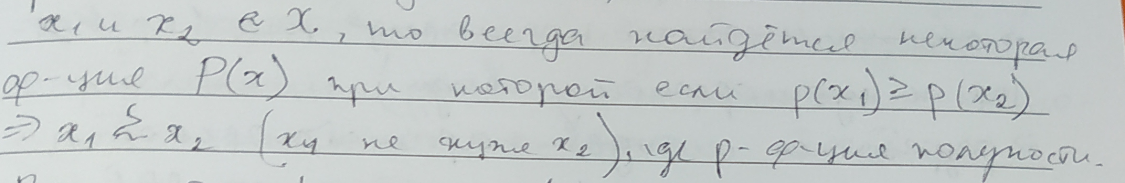 x₁ и x₂ ∈ X, то всегда найдётся некоторая
ф-ция P(x) при которой если p(x₁) ≥ p(x₂)
⇒ x₁ ≿ x₂ (x₁ не хуже x₂), где p - ф-ция полезности.